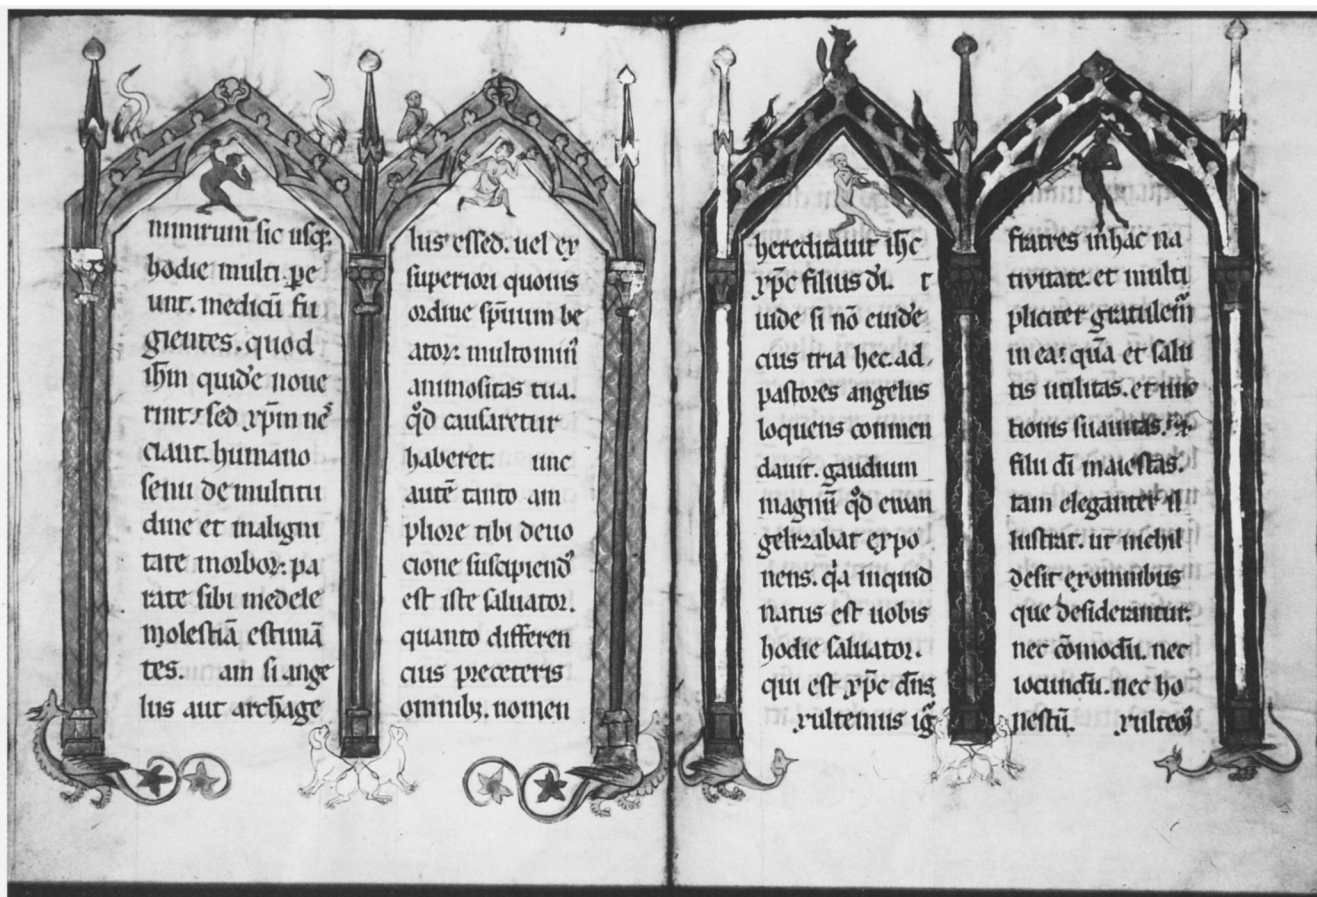 nimirum sic usq̄.
hodie multi pe
unt. medicū fu
gientes. quod
ih̄m quidē noue
runt: sed xp̄m neꝰ
ciant. humano
sensu de multitu
dine et maligni
tate morboꝝ: pa
rate sibi medele
molestiā estimā
tes. am si ange
lus aut archāge
lus essed. uel ex
superiori quouis
ordine sp̄uum be
atoꝝ: multo minꝰ
animositas tua.
qd̄ causaretur
haberet. unc
autē tanto am
pliore tibi deuo
cione suscipiendꝰ
est iste saluator.
quanto differen
cius preceteris
omnibꝫ. nomen
hereditauit ih̄c
xp̄c filius dī. t
uide si nō euidē
cius tria hec. ad
pastores angelus
loquens conmen
dauit. gaudium
magnū qd̄ ewan
gelizabat expo
nens. qͥa inquid
natus est uobis
hodie saluator.
qui est xp̄c dn̄s
xultemus ig̅
fratres in hac na
tiuitate. et multi
pliciter gratulem̄
in ea: quā et salu
tis utilitas. et unc
tionis suauitas.
filii dī maiestas.
tam eleganter il
lustrat. ut nichil
desit ex omnibus
que desiderantur.
nec cōmodū. nec
iocundū. nec ho
nestū. xulteꝰ